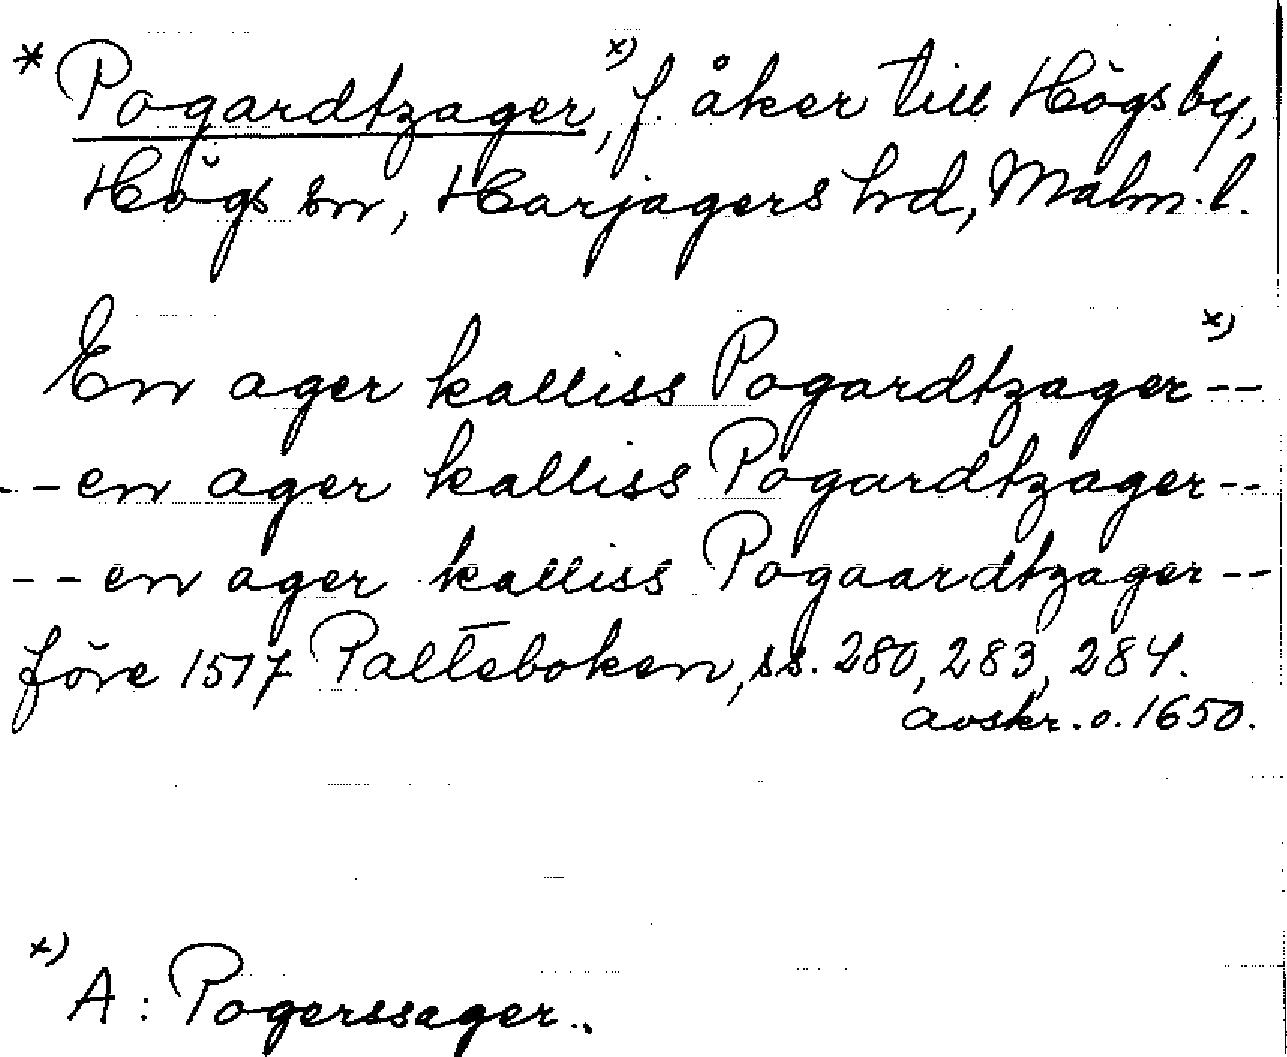 * Pogardtzager,ˣ⁾ f. åker till Högsby,
Högs sn, Harjagers hd, Malm. l.
En ager kalliss Pogardtzagerˣ⁾ --
-- en ager kalliss Pogardtzager --
-- en ager kalliss Pogaardtzager --
före 1517 Palteboken, ss. 280, 283, 284.
avskr. o. 1650.
ˣ⁾ A: Pogerssager..